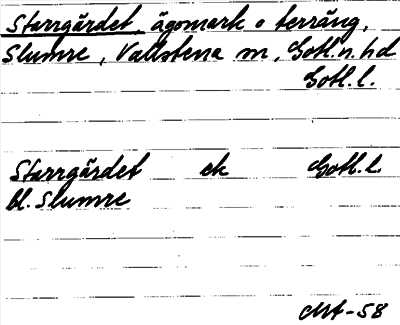 Starrgärdet, ägomark o terräng,
Slumre, Vallstena sn, Gotl. n. hd
Gotl. l.
Starrgärdet ek Gotl. l.
bl. Slumre
-58